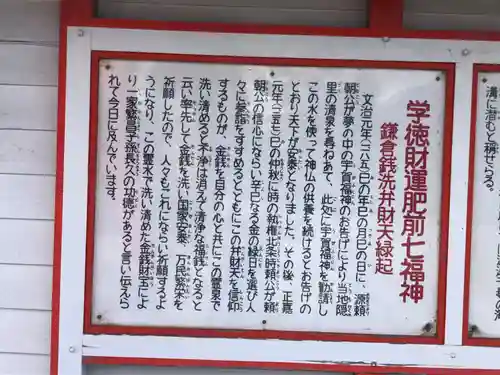 学徳財運肥前七福神
鎌倉銭洗弁財天縁起
文治元年(一一八五)巳の年巳の月巳の日に、源頼
朝公が夢の中の宇賀福神のお告げにより当地隠
里の清泉を尋ねあて、此処に宇賀福神を勧請し
この水を使って神仏の供養を続けるとお告げの
とおり天下が安泰となりました。その後、正嘉
元年(一二五七)巳の仲秋に時の執権北条時頼公が頼
朝公の信心にならい辛巳なる金の縁日を選び人
々に参詣をすすめるとともにこの弁財天を信仰
するものが、金銭を自分の心と共にこの霊泉で
洗い清めると不浄は消えて清浄な福銭となると
云い率先して金銭を洗い国家安泰、万民繁栄を
祈願したので、人々もこれにならい祈願するよ
うになり、この霊水で洗い清めた金銭財宝によ
り一家繁昌子孫長久の功徳があると言い伝えら
れて今日に及んでいます。
溝に潜むと称せらる。